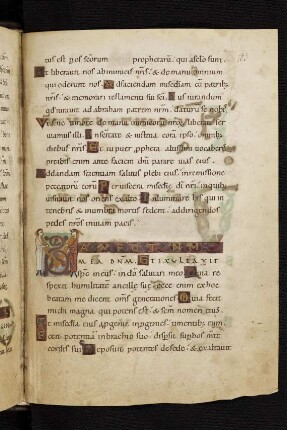 tus est p os scorum prophetarum qui a sclo sunt
Et liberavit nos ab inimicis nris & de manu omnium
qui oderunt nos Ad faciendam miscdiam cu patrib;
nris & memorari testamenti sui sci Ius iurandum
qd iuravit ad abraham patrem nrm daturu se nobis
Ut sine timore de manu inimicoru nroru liberati ser
viamus illi In scitate & iustitia cora ipso omnib;
dieb; nris Et tu puer ppheta altissimi vocaberis
preibis enim ante faciem dni parare vias eius
Ad dandam scientiam salutis plebi eius in remissione
peccatoru eoru Per viscera misedie di nri in quib;
visitavit nos oriens ex alto Illuminare his qui in
tenebris & in umbra mortis sedent ad dirigendos
pedes nros in viam pacis
MEA DNM ET EXULTAVIT
Sps meus in do salutari meo Quia re
spexit humilitatem ancille sue ecce enim ex hoc
beatam me dicent oms generationes Quia fecit
michi magna qui potens est & scm nomen eius
Et misedia eius a pgenie in pgenies timentib; eum
Fecit potentia in brachio suo dispsit supbos mte
cordis sui Deposuit potentes de sede & exaltavit